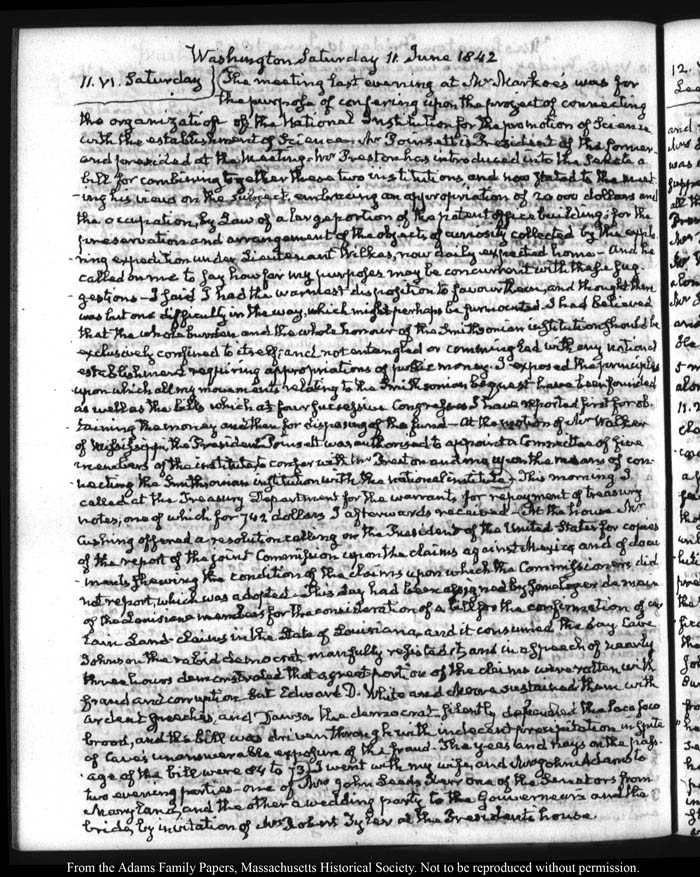 Washington Saturday 11. June 1842
11. VI. Saturday } The meeting last evening at Mr Markoe's was for
the purpose of confering upon the project of connecting
the organization of the National Institution for the promotion of Science
with the establishment of Science. Mr Poinsett is President of the former
and presided at the Meeting. Mr Preston has introduced into the Senate a
bill for combining together these two institutions and now stated to the meet-
-ing his views on the subject, embracing an appropriation of 20 000 dollars and
the occupation, by Law of a large portion of the patent office building; for the
preservation and arrangement of the objects of curiosity collected by the explo-
-ring expedition under Lieutenant Wilkes, now daily expected home - And he
called on me to say how far my purposes may be concurrent with these sug-
-gestions - I said I had the warmest disposition to favour them, and thought there
was but one difficulty in the way, which might perhaps be surmounted. I had believed
that the whole burden and the whole honour of the Smithsonian institution should be
exclusively confined to itself; and not entangled or commingled with any national
establishment requiring appropriations of public money. I exposed the principles
upon which all my movements relating to the Smithsonian bequest have been founded
as well as the bills which at four successive Congresses I have reported first for ob-
-taining the money and then for disposing of the fund - At the motion of Mr Walker
of Mississippi, the President Poinsett was authorised to appoint a Committee of five
members of the institute, to confer with Mr Preston and me upon the means of con-
-necting the Smithsonian institution with the national institute - This morning I
called at the Treasury Department for the warrants for repayment of treasury
notes, one of which for 742 dollars I afterwards received - At the house Mr
Cushing offered a resolution calling on the President of the United States for copies
of the report of the joint Commission upon the claims against Mexico, and of docu
-ments shewing the condition of the claims upon which the Commissioners did
not report, which was adopted - This day had been assigned by
of the Louisiana members for the consideration of a bill for the confirmation of cer
tain Land-claims in the State of Louisiana, and it consumed the day. Cave
Johnson the rabid democrat, manfully resisted it, and in a speech of nearly
three hours demonstrated that a great portion of the claims were rotten with
fraud and corruption but Edward D. White and Moore sustained them with
ardent speeches, and Dawson the democrat, silently the loco foco
brood, and the bill was driven through with indecent precipitation in spite
of Cave's unanswerable exposure of the fraud. The yeas and nays on the pass-
age of the bill were 84 to 73. I went with my wife, and Mrs John Adams to
two evening parties - one of Mrs John Leeds Kerr one of the Senators from
Maryland, and the other a wedding party to the Gouverneurs and the
bride, by invitation of Mrs Robert Tyler at the President's house.
From the Adams Family Papers, Massachusetts Historical Society. Not to be reproduced without permission.